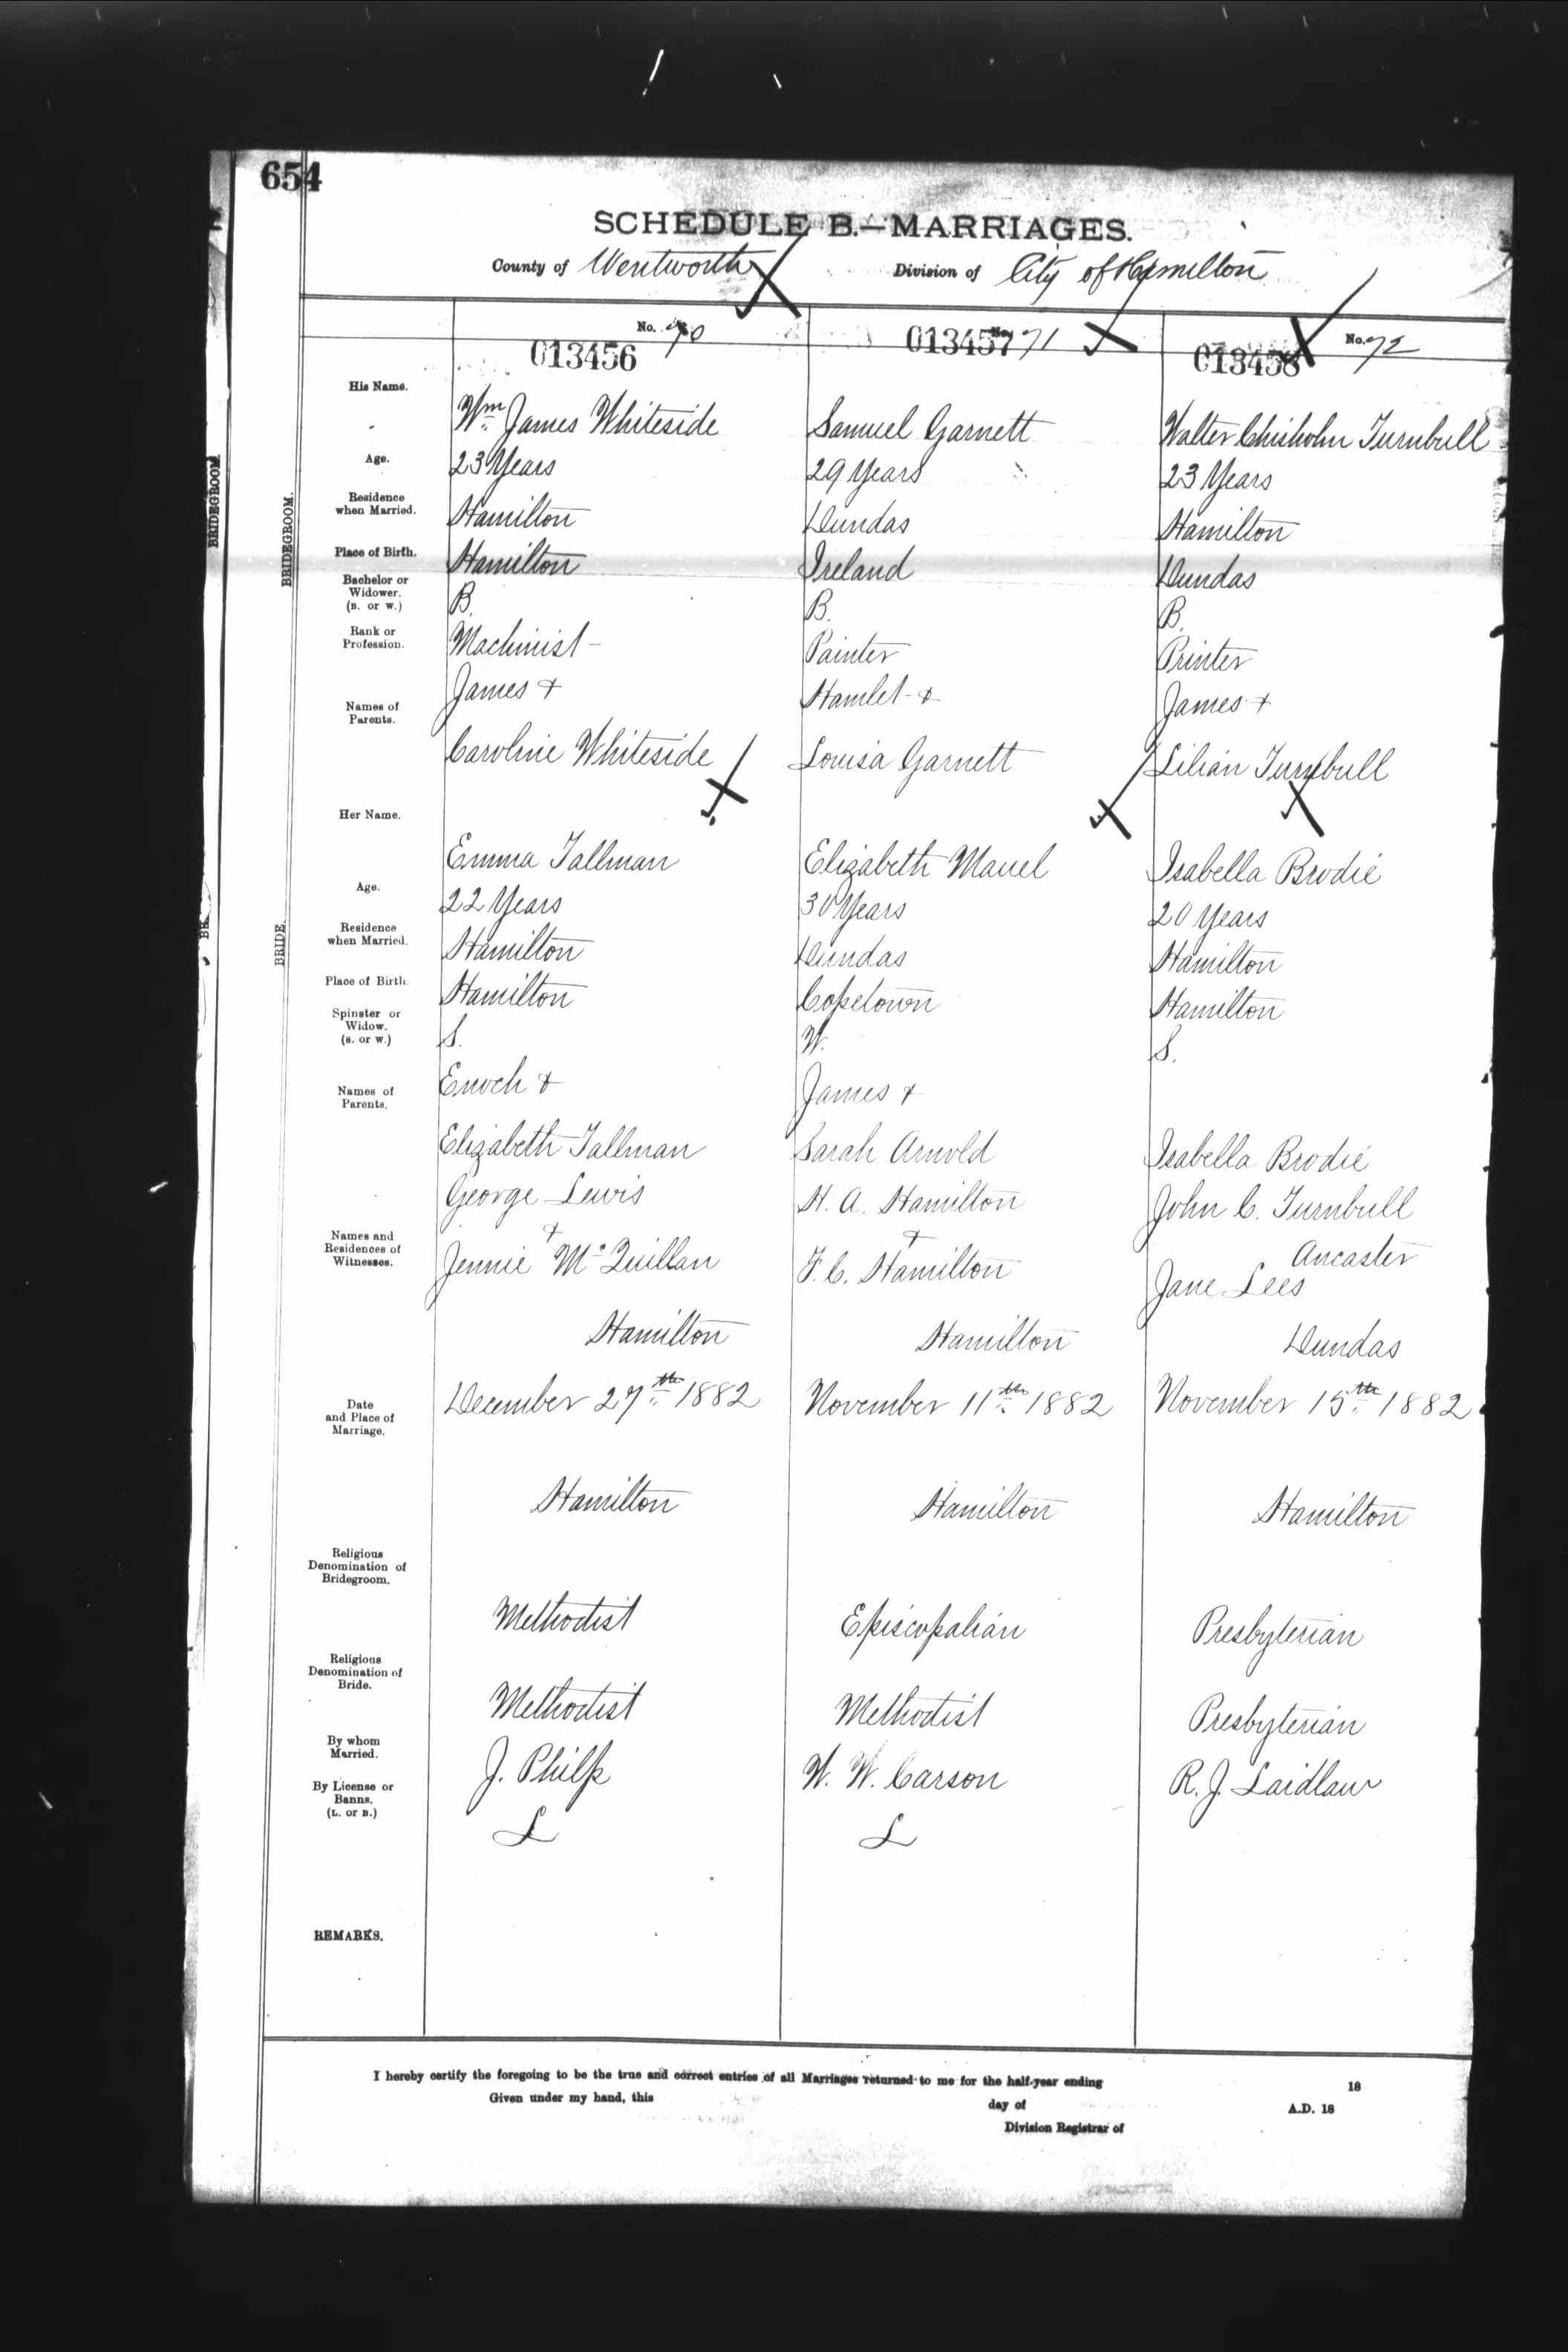 654
SCHEDULE B.—MARRIAGES.
County of Wentworth Division of City of Hamilton
No. 70
013456
013457 No. 71
013458 No. 72
BRIDEGROOM.
BRIDEGROOM.
His Name.
Wm James Whiteside
Samuel Garnett
Walter Chisholm Turnbull
Age.
23 Years
29 Years
23 Years
Residence when Married.
Hamilton
Dundas
Hamilton
Place of Birth.
Hamilton
Ireland
Dundas
Bachelor or Widower. (B. or W.)
B.
B.
B.
Rank or Profession.
Machinist –
Painter
Printer
Names of Parents.
James +
Caroline Whiteside
Hamlet +
Louisa Garnett
James +
Lilian Turnbull
BRIDE.
Her Name.
Emma Tallman
Elizabeth Mauel
Isabella Brodie
Age.
22 Years
30 Years
20 Years
Residence when Married.
Hamilton
Dundas
Hamilton
Place of Birth.
Hamilton
Copetown
Hamilton
Spinster or Widow. (S. or W.)
S.
W.
S.
Names of Parents.
Enoch +
Elizabeth Tallman
James +
Sarah Arnold
Isabella Brodie
Names and Residences of Witnesses.
George Lewis
+
Jennie McQuillan
Hamilton
H. A. Hamilton
+
F. C. Hamilton
Hamilton
John C. Turnbull
Ancaster
Jane Lees
Dundas
Date and Place of Marriage.
December 27th 1882
Hamilton
November 11th 1882
Hamilton
November 15th 1882
Hamilton
Religious Denomination of Bridegroom.
Methodist
Episcopalian
Presbyterian
Religious Denomination of Bride.
Methodist
Methodist
Presbyterian
By whom Married.
J. Philp
W. W. Carson
R. J. Laidlaw
By License or Banns. (L. or B.)
L
L
REMARKS.
I hereby certify the foregoing to be the true and correct entries of all Marriages returned to me for the half-year ending 18
Given under my hand, this day of A.D. 18
Division Registrar of